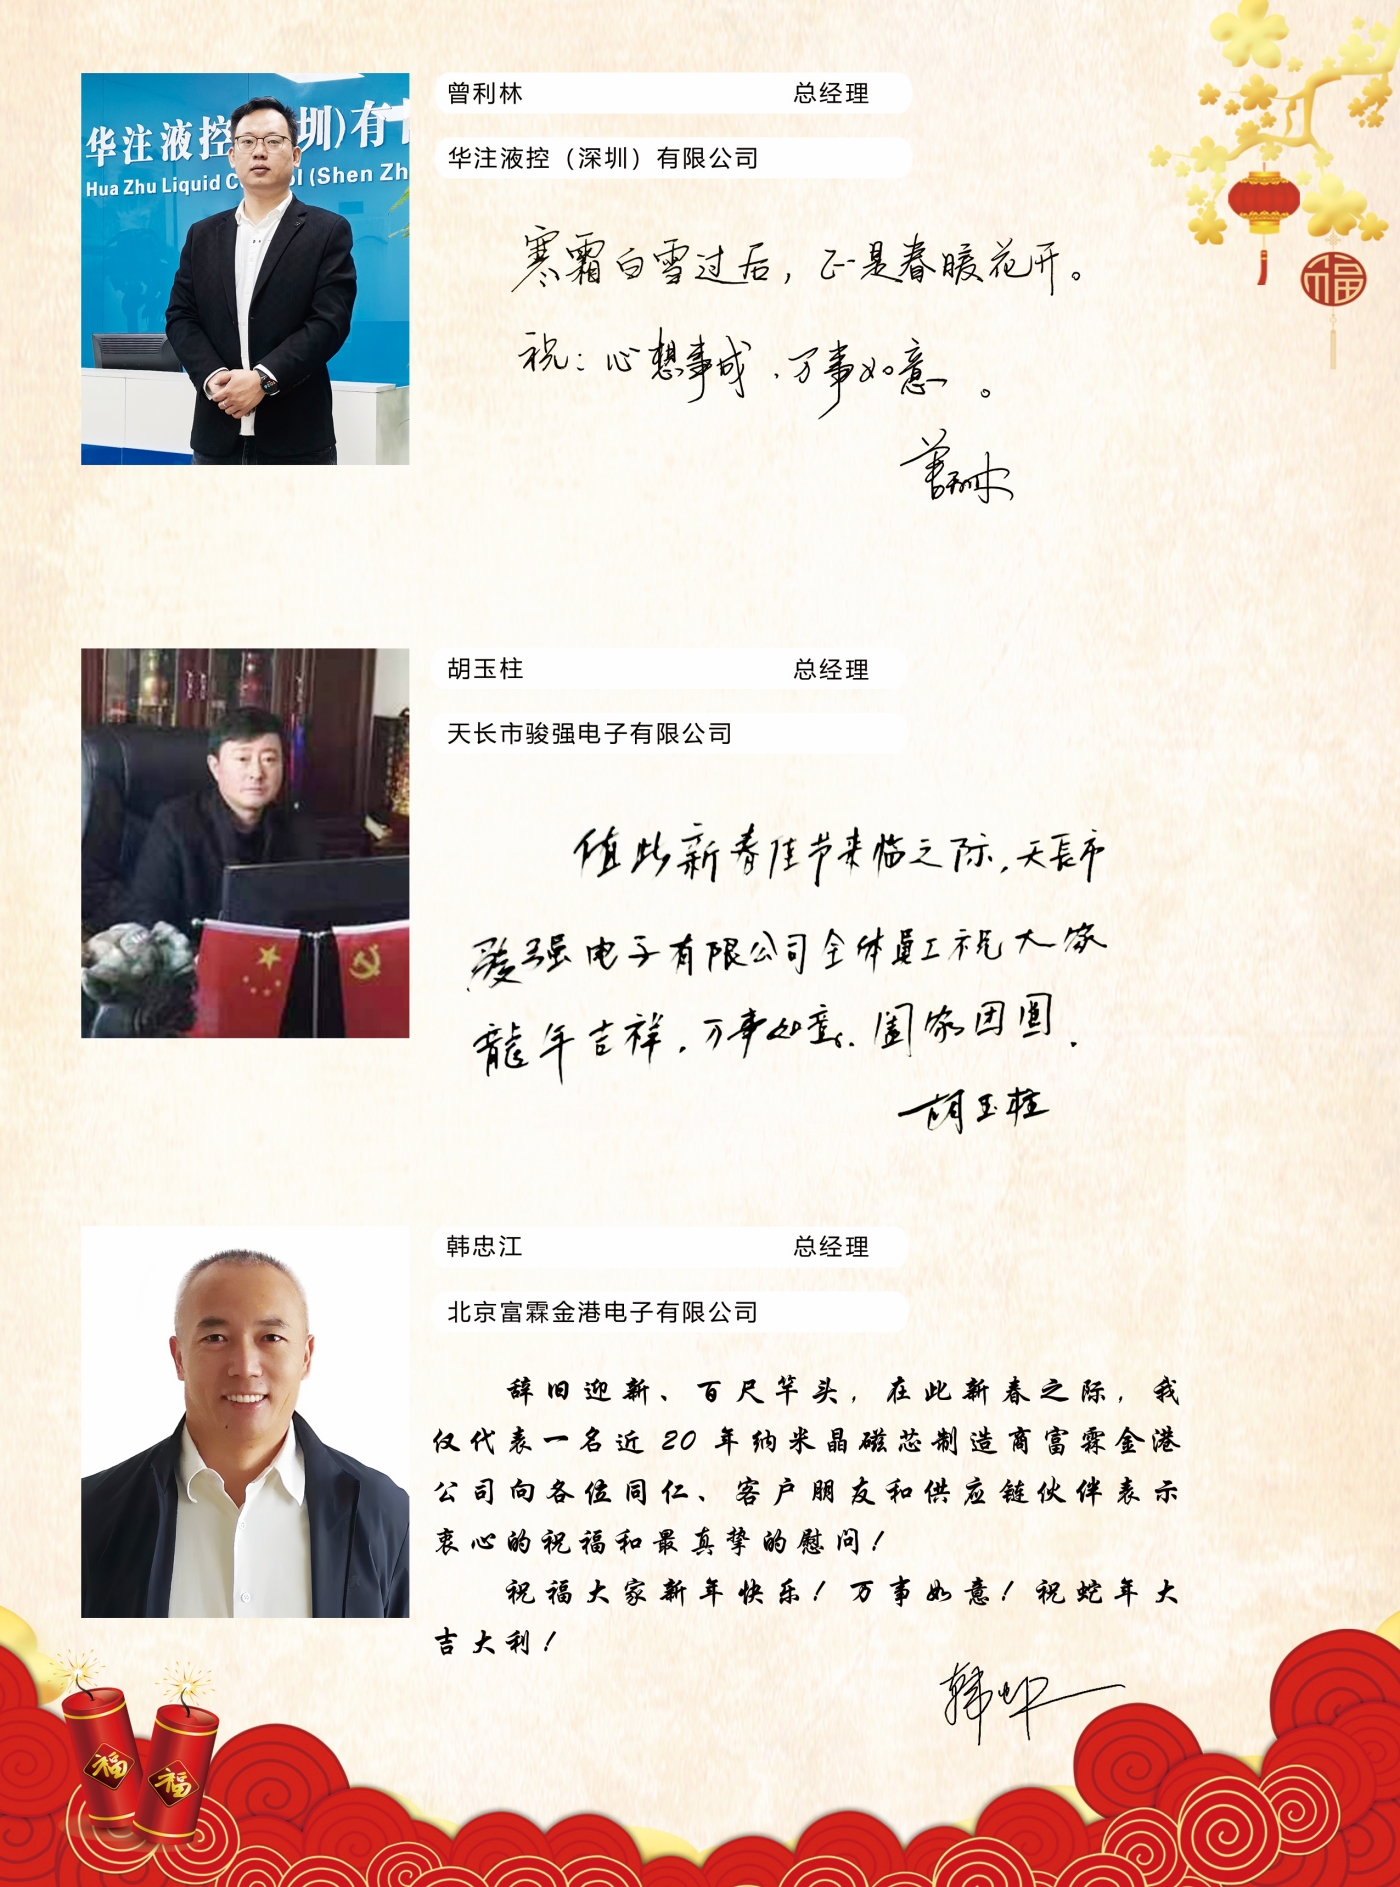 华注液控（深圳）有限
Hua Zhu Liquid Control (Shen Zh
曾利林 总经理
华注液控（深圳）有限公司
寒霜白雪过后，正是春暖花开。
祝：心想事成，万事如意。
曾利林
福
胡玉柱 总经理
天长市骏强电子有限公司
值此新春佳节来临之际，天長市
骏强电子有限公司全体員工祝大家
龍年吉祥，万事如意、阖家团圆.
胡玉柱
韩忠江 总经理
北京富霖金港电子有限公司
辞旧迎新、百尺竿头，在此新春之际，我
仅代表一名近 20 年纳米晶磁芯制造商富霖金港
公司向各位同仁、客户朋友和供应链伙伴表示
衷心的祝福和最真挚的慰问！
祝福大家新年快乐！万事如意！祝蛇年大
吉大利！
福
福